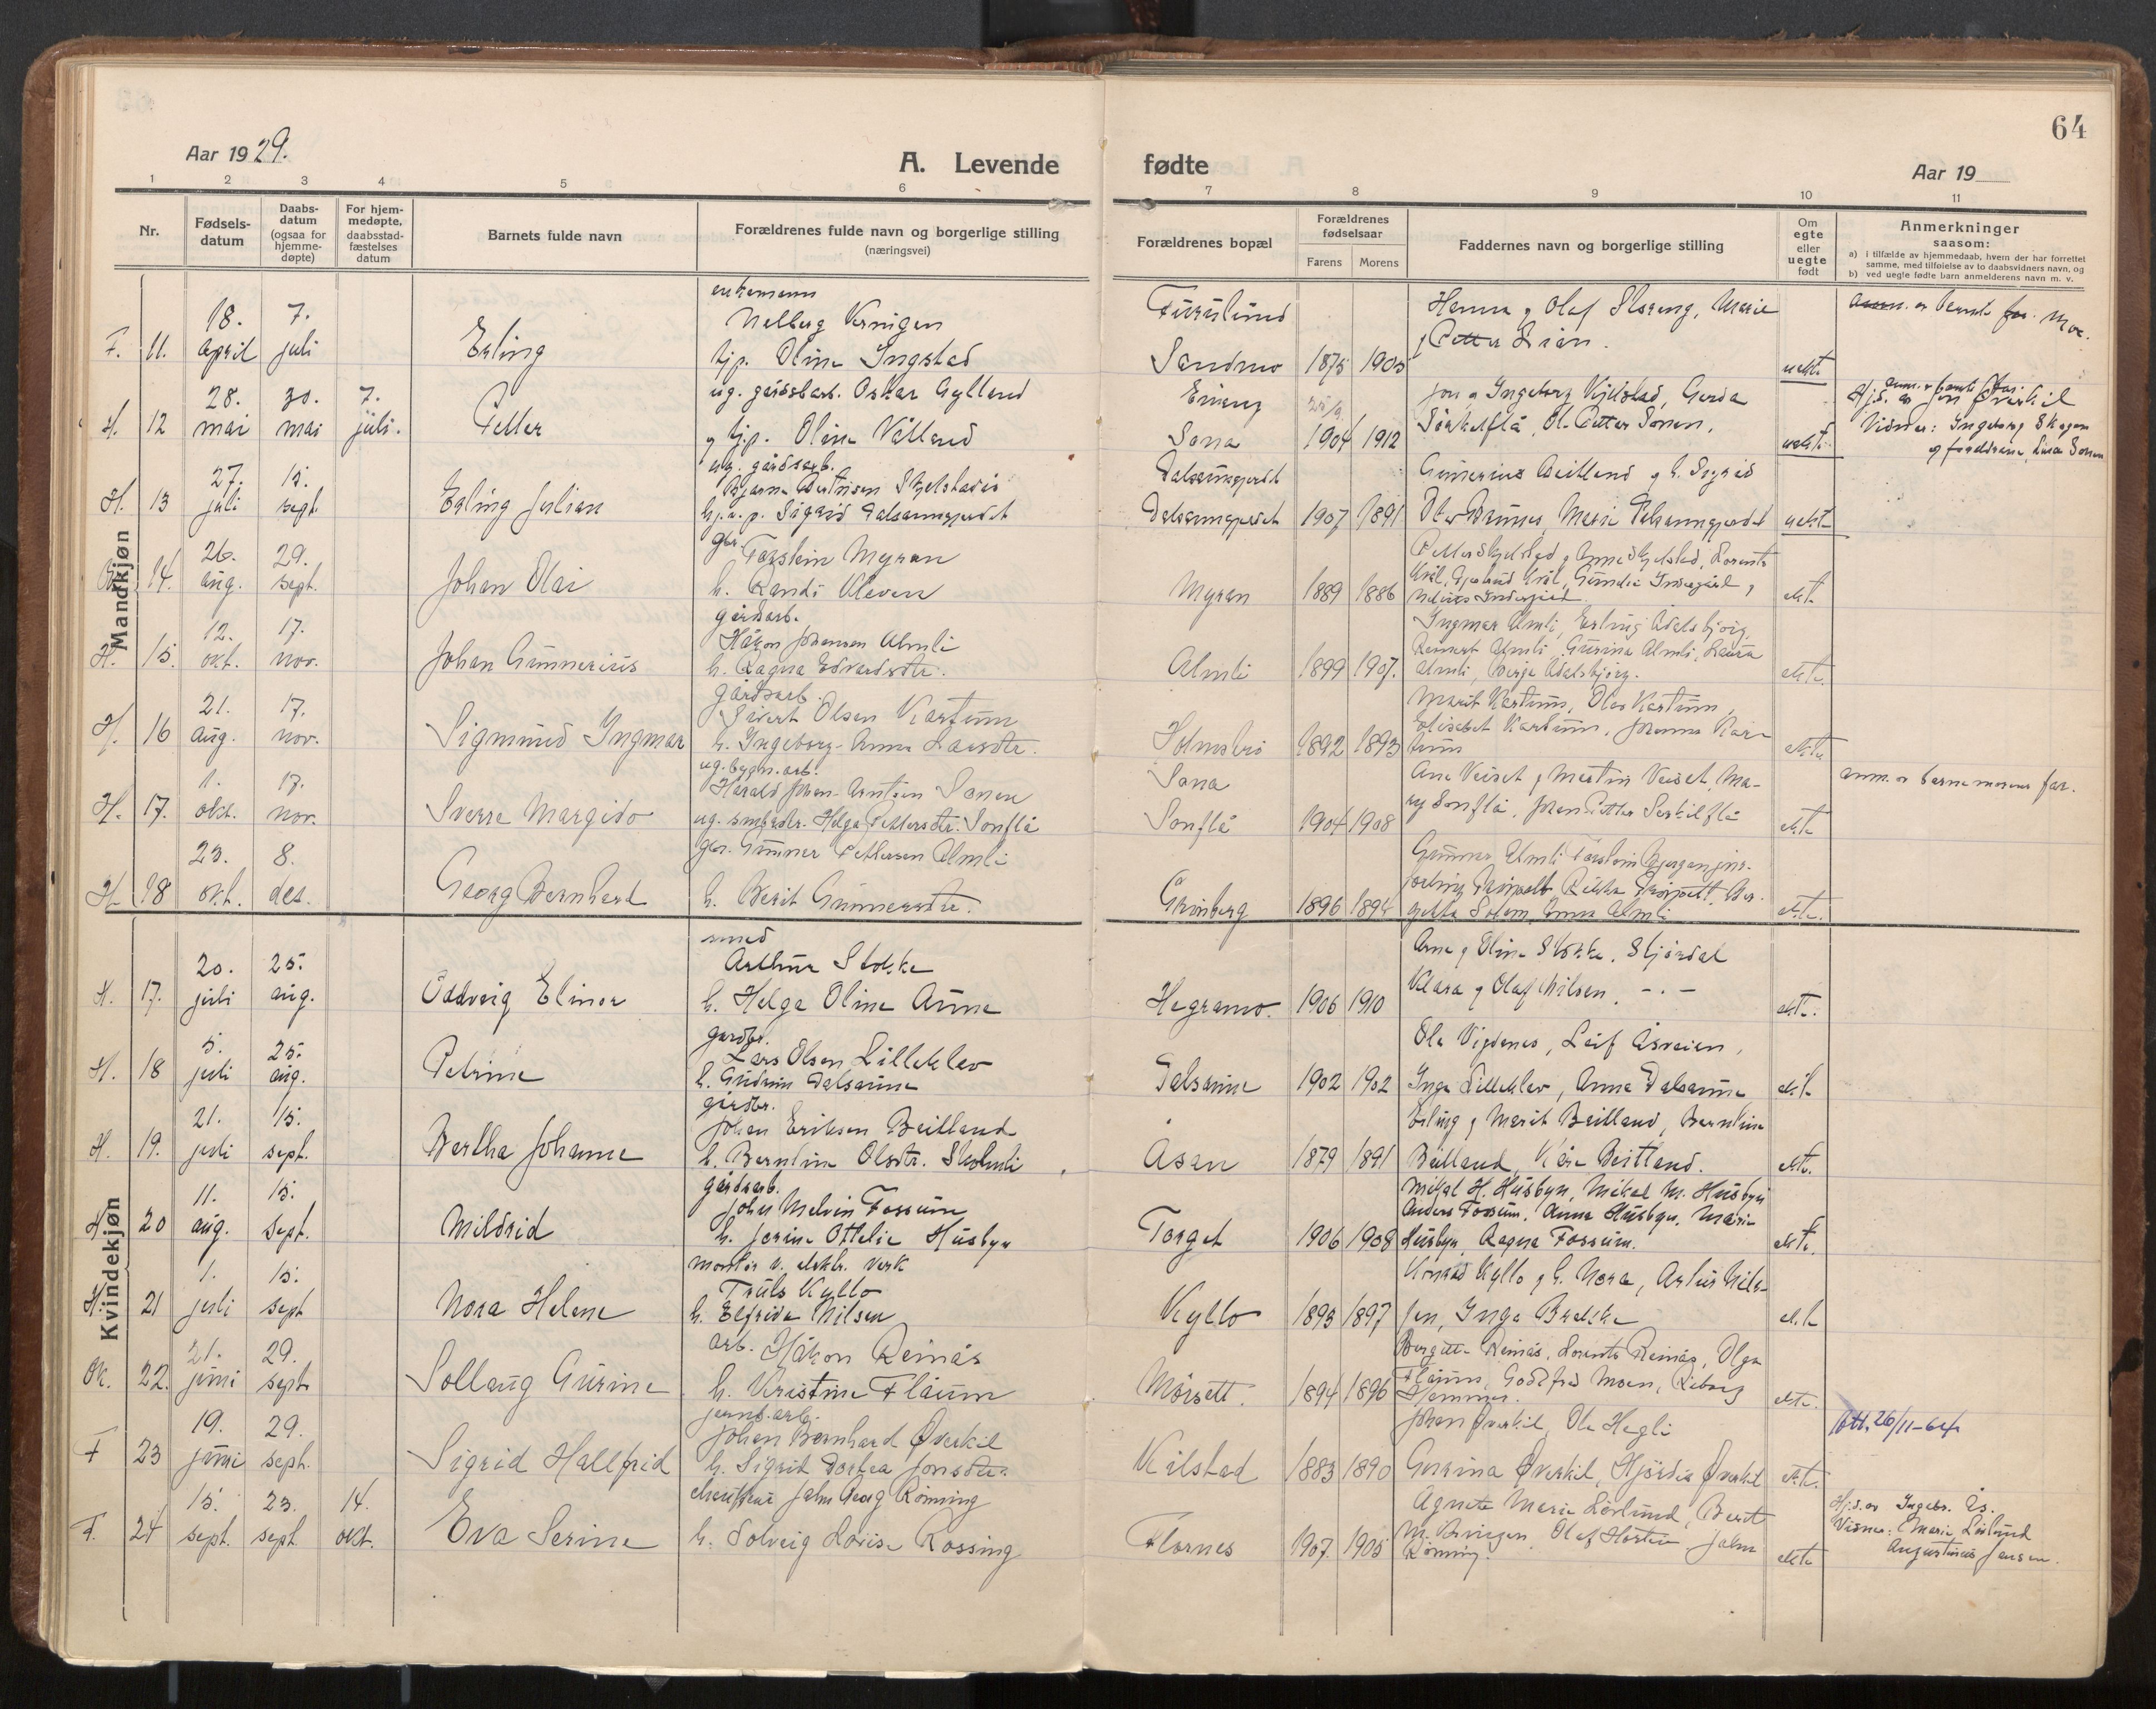 64
Aar 1929.
A. Levende
fødte
Aar 19
1 2 3 4 5 6
7 8 9 10 11
Nr.
Fødsels-
datum
Daabs-
datum
(ogsaa for
hjemme-
døpte)
For hjem-
medøpte,
daabsstad-
fæstelses
datum
Barnets fulde navn
Forældrenes fulde navn og borgerlige stilling
(næringsvei)
Forældrenes bopæl
Forældrenes
fødselsaar
Farens Morens
Faddernes navn og borgerlige stilling
Om
egte
eller
uegte
født
Anmerkninger
saasom:
a) i tilfælde av hjemmedaab, hvem der har forrettet
samme, med tilføielse av to daabsvidners navn, og
b) ved uegte fødte barn anmelderens navn m. v.
Mandkjøn
enkemann
F. 11. 18. april 7. juli Erling
tjp. Oline Ingstad
Furulund
Sandmo 1875 1905
Hanna og Olaf
Marie
og Petter Lian.
uekte
mor.
H. 12 28. mai 30. mai 7. juli. Petter
ug. gårdsarb. Oskar Gylland
og tjp. Oline Valland
Sona 1904 1912
25/9
Jon og Ingeborg
Gerda
Ol. Petter Sonen.
uekte
Hj.d. av Jon Øverkil
Vidner: Ingeborg Skogen
H. 13 27. juli 15. sept. Erling Julian
ug. gårdsarb.
Bjarne
Sigrid Dalsaungjerdet
Dalsaungjerdet
Dalsaungjerdet 1907 1891
Gunerius Beitland og h. Sigrid
Marie Dalsaungjerdet
uekte
14. 26. aug. 29. sept. Johan Olai
gbr. Torstein Myran
h. Randi Kleven
Myran 1889 1886
Petter Skjelstad og Anne Skjelstad, Lorents
ekte
H. 15. 12. okt. 17. nov. Johan Gunnerius
gårdsarb.
Håkon Johansen Almli
h. Ragna Edvardsdtr.
Almli 1899 1907.
Ingmar Almli, Erling
Almli, Gurina Almli, Laura
Almli,
ekte
H. 16 21. aug. 17. nov. Sigmund Ingmar
gårdsarb.
Sivert Olsen Kartum
h. Ingeborg Anna Larsdtr.
1892 1893
Marit Kartum, Olav Kartum,
Elisabet Kartum, Johanna Kar-
tum
ekte
H. 17. 1. okt. 17. nov. Sverre Margido
ug. bygn. arb.
Harald Johan Arntsen Sonen
Helga Pettersdtr. Sonflå
Sona
Sonflå 1904 1908
Ane Veiset og Martin Veiset, Ma-
ry Sonflå, Johan Petter
ekte
anm. er barnemorens far.
H. 18 23. okt. 8. des. Georg Bernhard
gbr. Gunner Pettersen Almli
h. Berit Gunnersdtr.
Grinberg 1896 1894
Gunner Almli
Solem, Anna Almli
ekte.
Kvindekjøn
H. 17. 20. juli 25. aug. Oddveig Elinor
smed
Arthur Stokke
h. Helga Oline Aune
Hegramo. 1906 1910
Arne og Oline Stokke, Stjørdal
Klara og Olaf Nilsen. - . -
ekte.
H. 18 5. juli 25. aug. Petrine
gardbr.
Lars Olsen Lilleklev
h. Gudrun Dalsaune
Dalsaune 1902 1902
Ola Vigdenes, Leif Åsveien,
Inga Lilleklev, Anna Dalsaune
ekte
H. 19. 21. juli 15. sept. Bertha Johanne
gårdbr.
Johan Eriksen Beitland
h. Berntine Olsdtr. Skolmli
Åsan 1879 1891
Erling og Marit Beitland, Berntine
Beitland, Kåre Beitland.
ekte.
H. 20 11. aug. 15. sept. Mildrid
gårdsarb.
John Melvin Fossum
h. Jorine Ottelie Husbyn
Torget 1906 1908
Mikal H. Husbyn, Mikal M. Husbyn
Anders Fossum, Anna Husbyn, Marie
Husbyn, Ragna Fossum.
ekte.
H. 21 1. juli 15. sept Nora Helene
montør v. elektr. verk
Truls Kyllo
h. Elfrida Nilsen
Kyllo 1893 1897
Konrad Kyllo og h. Nora, Artur Nils-
sen, Inga Brekke
ekte
Ok. 22. 21. juni 29. sept. Sollaug Gurine
arb. Håkon Reinås
h. Kristine Flaum
Mørsett. 1894 1896
Bergitte Reinås, Lorents Reinås, Olga
Flaum, Godtfred Moen,
ekte.
F 23 19. juni 29. sept. Sigrid Hallfrid
jernb. arb.
Johan Bernhard Øverkil
h. Sigrid Dorthea Jonsdtr.
Kilstad 1883 1890
Johan Øverkil, Ole Hegli
Gurina Øverkil, Hjørdis Øverkil
ekte.
Att. 26/11-64
F. 24 15. sept. 23. sept 14. okt. Eva Serine
John Georg Rønning
h. Solveig Lovise Rossing
Flornes 1907. 1905
Agnete Marie Lørlund, Berit
Olaf
John
Rønning.
ekte
Hj.d. av Ingebr. Ås.
Vidner: Marie Lørlund
Augustinus Jensen.